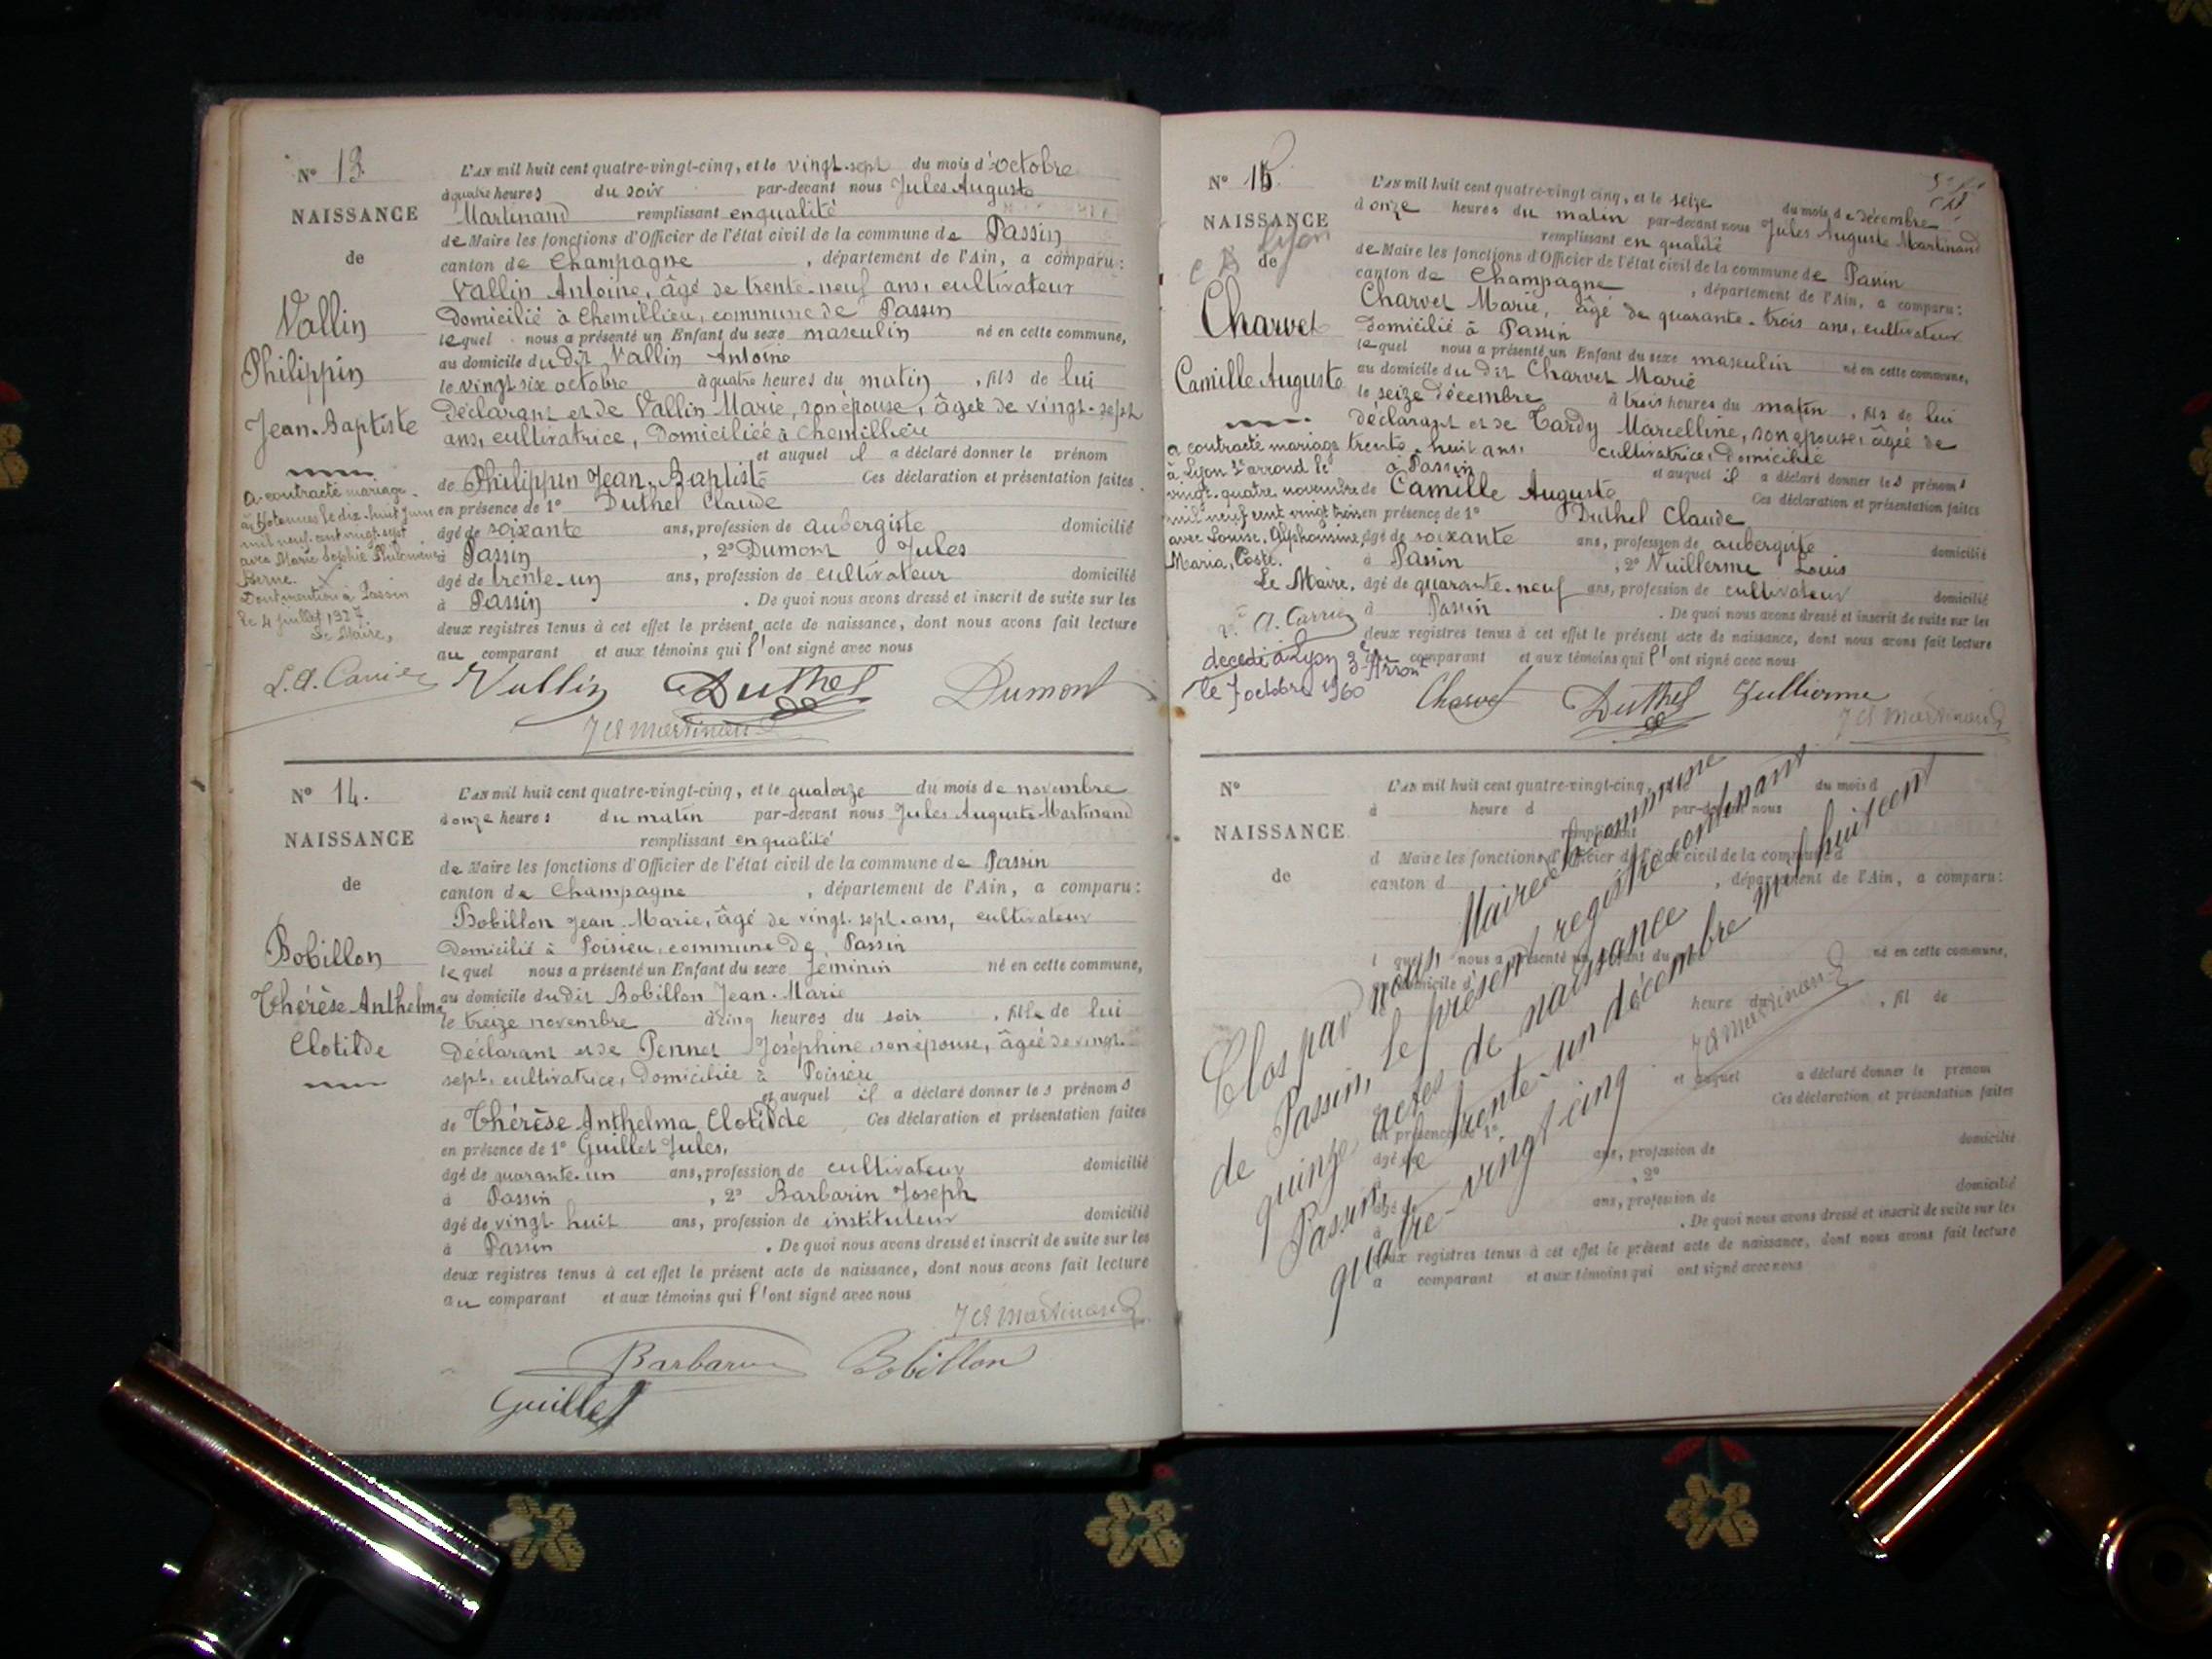 N° 13
NAISSANCE
de
Vallin
Philippin
Jean-Baptiste
a contracté mariage
à Hotonnes le dix-huit juin
mil neuf cent vingt sept
avec Marie Sophie
Berne.
Dont mention à Passin
le 4 juillet 1927
Le Maire,
L'AN mil huit cent quatre-vingt-cinq, et le vingt-sept du mois d'octobre
à quatre heures du soir par-devant nous Jules Auguste
Martinand remplissant en qualité
de Maire les fonctions d'Officier de l'état civil de la commune de Passin
canton de Champagne, département de l'Ain, a comparu:
Vallin Antoine, âgé de trente-neuf ans, cultivateur
domicilié à Chemillieu, commune de Passin
lequel nous a présenté un Enfant du sexe masculin né en cette commune,
au domicile du dit Vallin Antoine
le vingt six octobre à quatre heures du matin, fils de lui
déclarant et de Vallin Marie, son épouse, âgée de vingt-sept
ans, cultivatrice, domiciliée à Chemillieu
et auquel il a déclaré donner le prénom
de Philippin Jean-Baptiste Ces déclaration et présentation faites
en présence de 1° Duthel Claude
âgé de soixante ans, profession de aubergiste domicilié
à Passin, 2° Dumont Jules
âgé de trente-un ans, profession de cultivateur domicilié
à Passin. De quoi nous avons dressé et inscrit de suite sur les
deux registres tenus à cet effet le présent acte de naissance, dont nous avons fait lecture
au comparant et aux témoins qui l'ont signé avec nous
Vallin Duthel Dumont
J A Martinand
N° 14.
NAISSANCE
de
Bobillon
Thérèse Anthelma
Clotilde
L'AN mil huit cent quatre-vingt-cinq, et le quatorze du mois de novembre
à onze heures du matin par-devant nous Jules Auguste Martinand
remplissant en qualité
de Maire les fonctions d'Officier de l'état civil de la commune de Passin
canton de Champagne, département de l'Ain, a comparu:
Bobillon Jean-Marie, âgé de vingt-sept-ans, cultivateur
domicilié à Poisieu, commune de Passin
lequel nous a présenté un Enfant du sexe féminin né en cette commune,
au domicile dudit Bobillon Jean-Marie
le treize novembre à cinq heures du soir, fille de lui
déclarant et de Pennet Joséphine, son épouse, âgée de vingt-
sept, cultivatrice, domiciliée à Poisieu
et auquel il a déclaré donner les prénoms
de Thérèse Anthelma Clotilde Ces déclaration et présentation faites
en présence de 1° Guillet Jules,
âgé de quarante-un ans, profession de cultivateur domicilié
à Passin, 2° Barbarin Joseph
âgé de vingt-huit ans, profession de instituteur domicilié
à Passin. De quoi nous avons dressé et inscrit de suite sur les
deux registres tenus à cet effet le présent acte de naissance, dont nous avons fait lecture
au comparant et aux témoins qui l'ont signé avec nous
J A Martinand
Barbarin Bobillon
Guillet
N° 15
NAISSANCE
de
Lyon
Charvet
Camille Auguste
a contracté mariage
à Lyon 3e arrond le
vingt-quatre novembre
mil neuf cent vingt trois
avec Louise, Alphonsine,
Maria, Coste.
Le Maire,
A. Carrier
décédé à Lyon 3e Arront
le 7 octobre 1960
L'AN mil huit cent quatre-vingt cinq, et le seize du mois de décembre
à onze heures du matin par-devant nous Jules Auguste Martinand
remplissant en qualité
de Maire les fonctions d'Officier de l'état civil de la commune de Passin
canton de Champagne, département de l'Ain, a comparu:
Charvet Marie, âgé de quarante-trois ans, cultivateur
domicilié à Passin
lequel nous a présenté un Enfant du sexe masculin né en cette commune,
au domicile du dit Charvet Marie
le seize décembre à trois heures du matin, fils de lui
déclarant et de Tardy Marcelline, son épouse, âgée de
trente-huit ans, cultivatrice, domiciliée
à Passin et auquel il a déclaré donner les prénoms
de Camille Auguste Ces déclaration et présentation faites
en présence de 1° Duthel Claude
âgé de soixante ans, profession de aubergiste domicilié
à Passin, 2° Vuillerme Louis
âgé de quarante-neuf ans, profession de cultivateur domicilié
à Passin. De quoi nous avons dressé et inscrit de suite sur les
deux registres tenus à cet effet le présent acte de naissance, dont nous avons fait lecture
au comparant et aux témoins qui l'ont signé avec nous
Charvet Duthel Vullierme
J A Martinand
N°
NAISSANCE
de
L'AN mil huit cent quatre-vingt-cinq, et le du mois d
à heure d par-devant nous
remplissant
d Maire les fonctions d'Officier de l'état civil de la commune d
canton d, département de l'Ain, a comparu:
l quel nous a présenté un Enfant du sexe né en cette commune,
au domicile d
heure du, fil de
et auquel a déclaré donner le prénom
Ces déclaration et présentation faites
en présence de 1°
âgé de ans, profession de domicilié
à, 2°
âgé de ans, profession de domicilié
à. De quoi nous avons dressé et inscrit de suite sur les
deux registres tenus à cet effet le présent acte de naissance, dont nous avons fait lecture
a comparant et aux témoins qui ont signé avec nous
Clos par nous, Maire de la commune
de Passin, le présent registre contenant
quinze actes de naissance
Passin le trente-un décembre mil huit cent
quatre-vingt cinq
J A Martinand